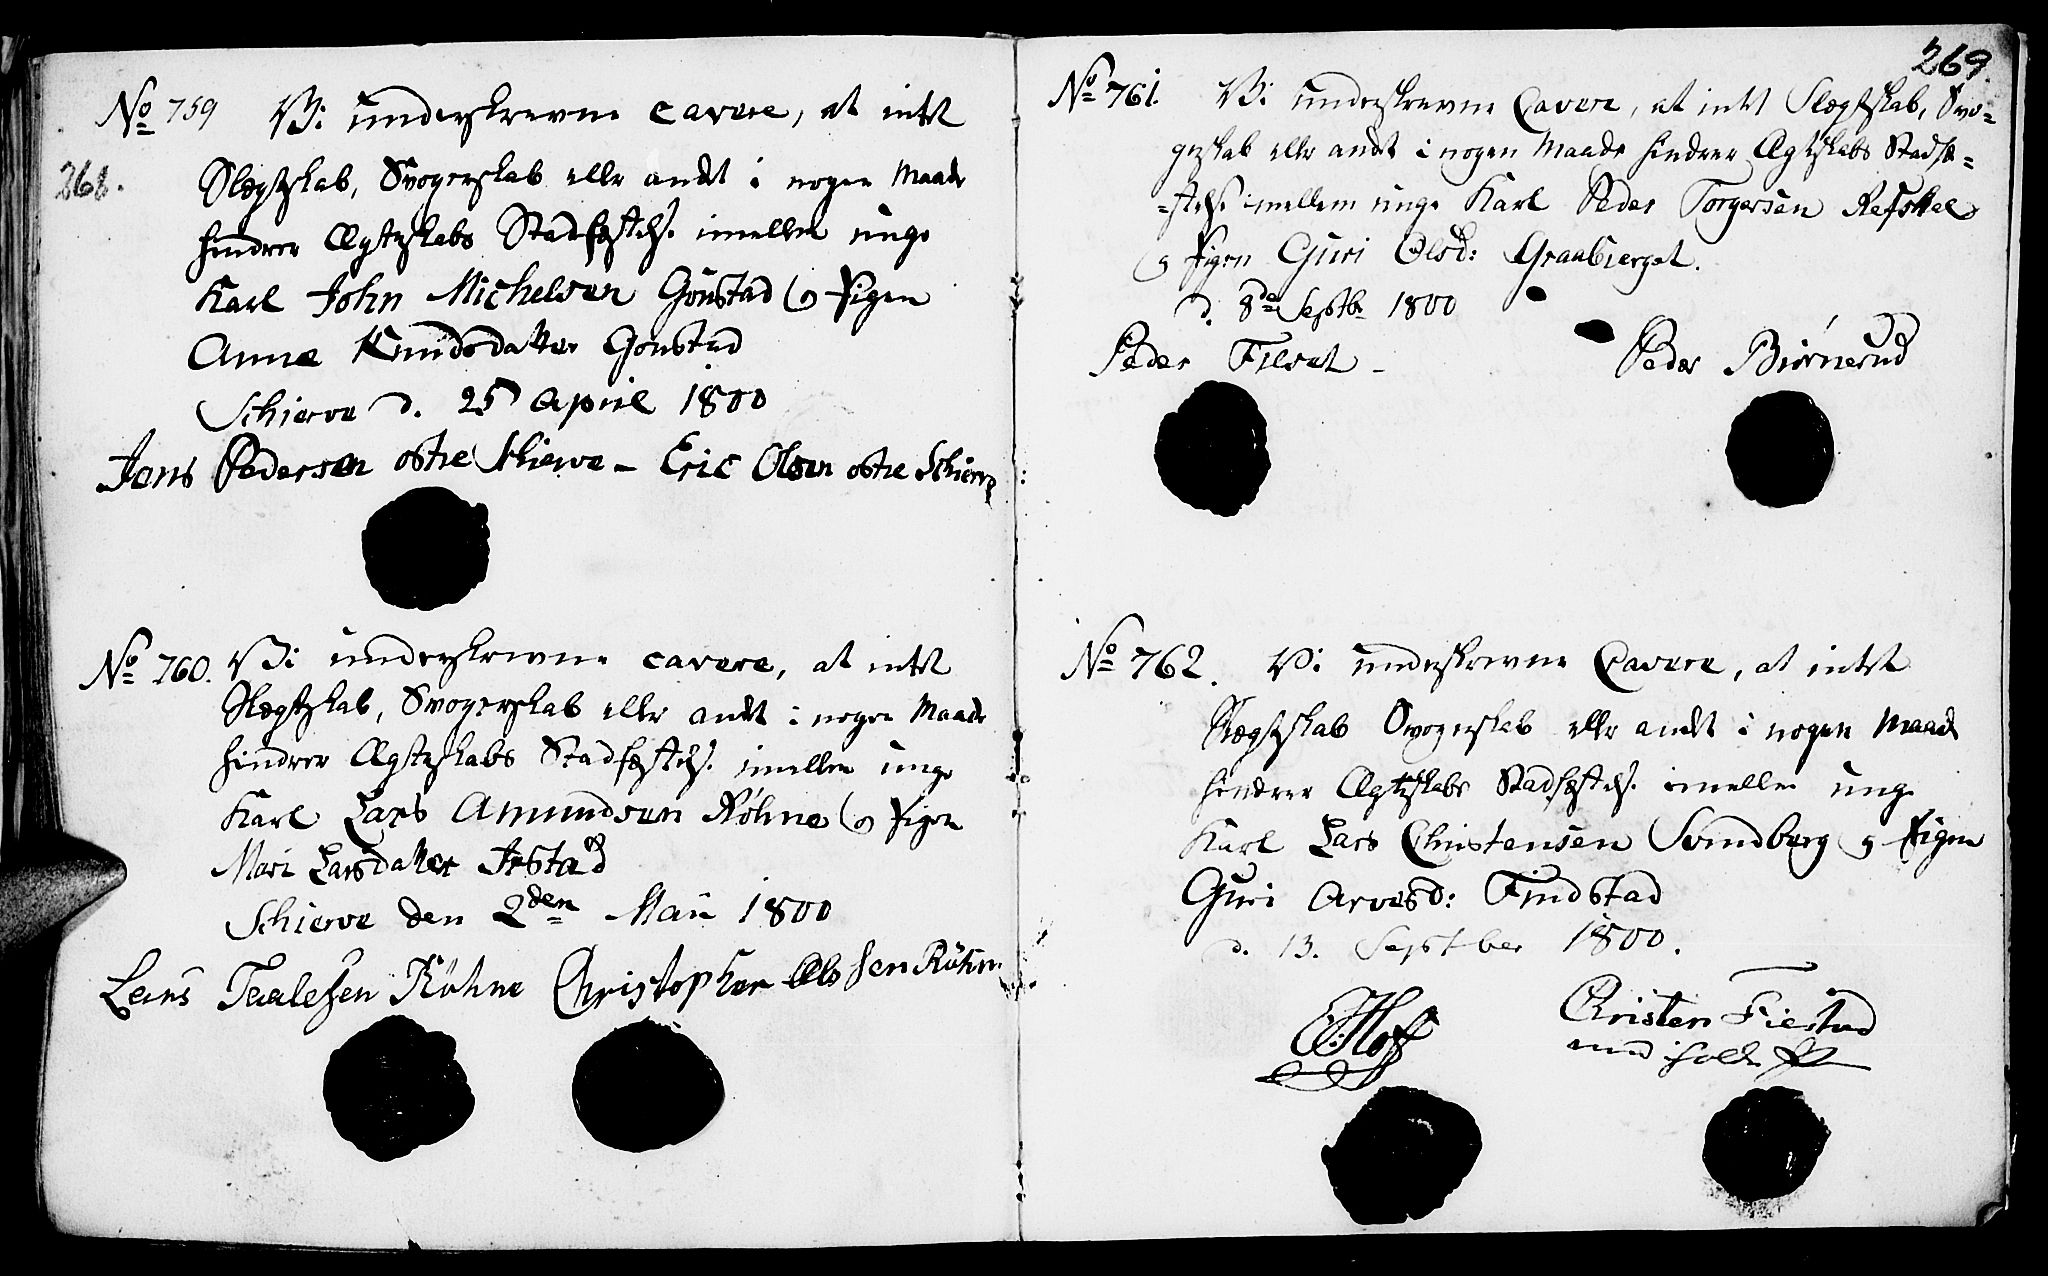 268.
No 759 Vi underskrevne cavere, at intet
Slægtskab, Svogerskab eller andet i nogen Maade
hindrer Ægteskabs Stadfæstelse imellem unge
Karl John Michelsen Gonstad og Pigen
Anne Knudsdatter Gonstad
Schierve d. 25 April 1800
Jens Pedersen østre Skierve - Eric Olsen østre Schierve
No 760. Vi underskrevne cavere, at intet
Slægtskab, Svogerskab eller andet i nogen Maade
hindrer Ægteskabs Stadfæstelse imellem unge
Karl Lars Amundsen Røhne og Pigen
Mari Larsdatter Irstad
Schierve den 2den Maii 1800
Lars Taalesen Røhne Christopher Olssen Røhne
269.
No 761. Vi underskrevne Cavere, at intet Slægtskab, Svo=
gerskab eller andet i nogen Maade hindrer Ægteskabs Stadfæ=
=stelse imellem unge Karl Peder Torgersen Refskal
og Pigen Guri Olsd: Graabierget.
d. 8de Septbr 1800
Peder Filset - Peder Biørnerud
No 762. Vi underskrevne Cavere, at intet
Slægtskab Svogerskab eller andet i nogen Maade
hindrer Ægteskabs Stadfæstelse imellem unge
Karl Lars Christensen Svindberg og Pigen
Guri Arvesd: Findstad
d. 13. September 1800.
Hoff Christen Fiestad
med